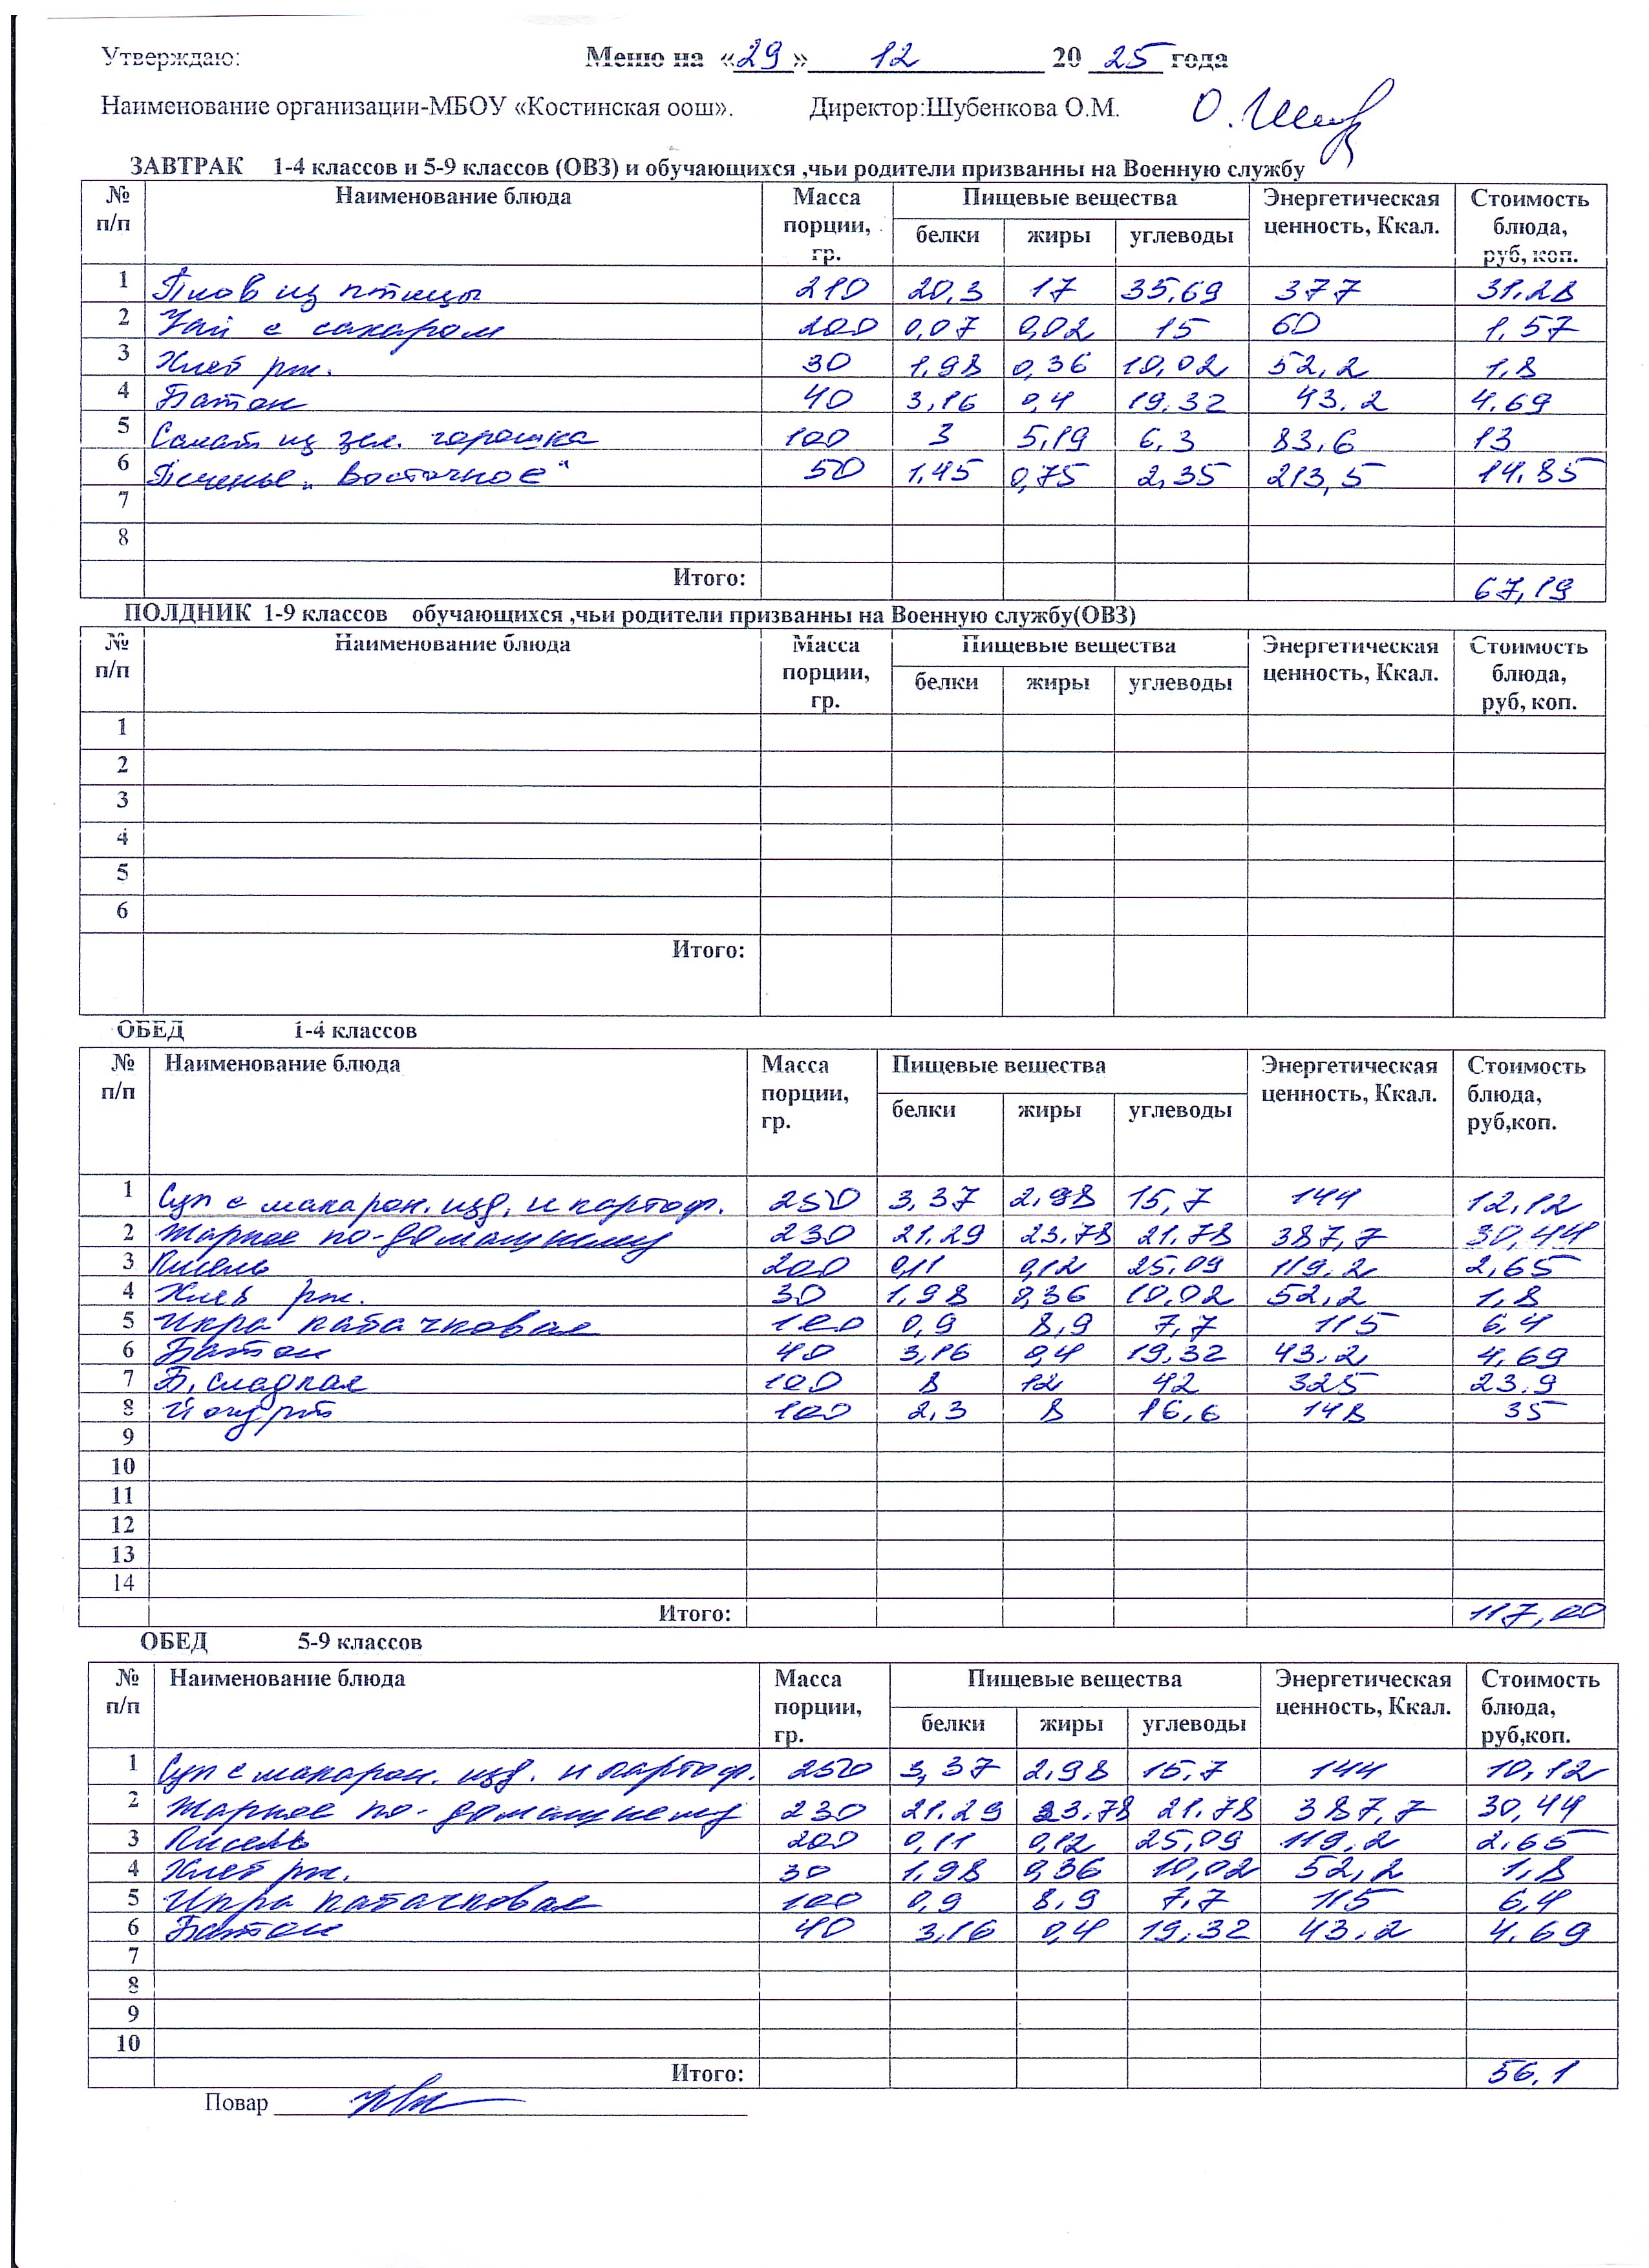 Утверждаю: Меню на «29» 12 20 25 года
Наименование организации-МБОУ «Костинская оош». Директор:Шубенкова О.М.
ЗАВТРАК 1-4 классов и 5-9 классов (ОВЗ) и обучающихся ,чьи родители призванны на Военную службу
№ п/п Наименование блюда Масса порции, гр. Пищевые вещества белки жиры углеводы Энергетическая ценность, Ккал. Стоимость блюда, руб, коп.
1 Плов из птицы 210 20,3 17 35,69 377 31.28
2 Чай с сахаром 200 0,07 0,02 15 60 1,57
3 Хлеб рж. 30 1,98 0,36 10,02 52,2 1,8
4 Батон 40 3,16 0,4 19,32 43.2 4.69
5 Салат из зел. горошка 100 3 5,19 6,3 83,6 13
6 Печенье „Восточное" 50 1,45 0,75 2,35 213,5 14.85
7
8
Итого: 67,19
ПОЛДНИК 1-9 классов обучающихся ,чьи родители призванны на Военную службу(ОВЗ)
№ п/п Наименование блюда Масса порции, гр. Пищевые вещества белки жиры углеводы Энергетическая ценность, Ккал. Стоимость блюда, руб, коп.
1
2
3
4
5
6
Итого:
ОБЕД 1-4 классов
№ п/п Наименование блюда Масса порции, гр. Пищевые вещества белки жиры углеводы Энергетическая ценность, Ккал. Стоимость блюда, руб,коп.
1 Суп с макарон. изд. и картоф. 250 3,37 2,98 15,7 144 12,12
2 Жаркое по-домашнему 230 21.29 23.78 21.78 387,7 30,44
3 Кисель 200 0,11 0,12 25,09 119.2 2,65
4 Хлеб рж. 30 1,98 0,36 10,02 52,2 1,8
5 Икра кабачковая 100 0,9 8,9 7,7 115 6,4
6 Батон 40 3,16 0,4 19,32 43.2 4,69
7 Б. сладкая 100 8 12 42 325 23.9
8 Йогурт 100 2,3 8 16,6 148 35
9
10
11
12
13
14
Итого: 117,00
ОБЕД 5-9 классов
№ п/п Наименование блюда Масса порции, гр. Пищевые вещества белки жиры углеводы Энергетическая ценность, Ккал. Стоимость блюда, руб,коп.
1 Суп с макарон. изд. и картоф. 250 3,37 2,98 15,7 144 10,12
2 Жаркое по-домашнему 230 21.29 23.78 21.78 387,7 30,44
3 Кисель 200 0,11 0,12 25,09 119,2 2,65
4 Хлеб рж. 30 1,98 0,36 10,02 52,2 1,8
5 Икра кабачковая 100 0,9 8,9 7,7 115 6,4
6 Батон 40 3,16 0,4 19,32 43.2 4.69
7
8
9
10
Итого: 56.1
Повар